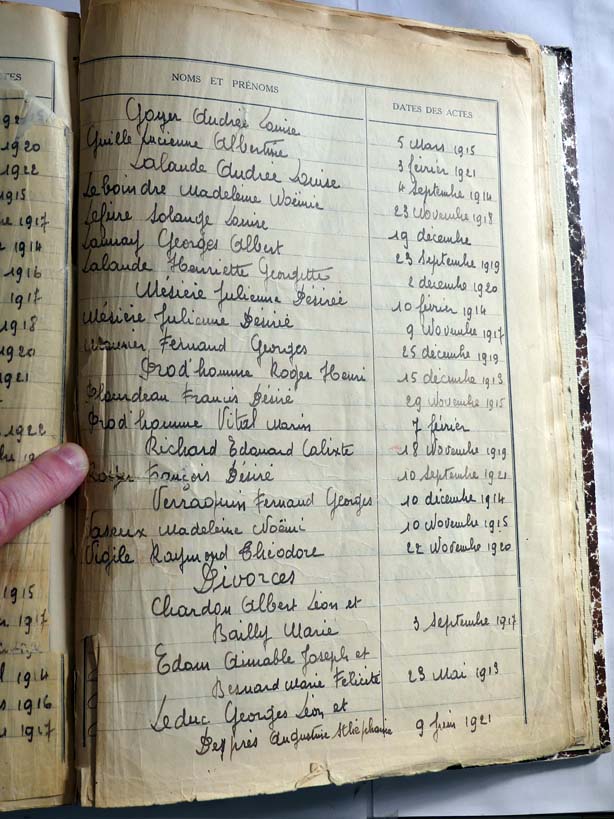 TES
1920
1922
1915
1917
1914
1916
1917
1918
1920
1921
1922
1915
1917
1914
1916
1917
NOMS ET PRÉNOMS DATES DES ACTES
Goyer Andrée Louise 5 Mars 1915
Guille Lucienne Albertine 3 février 1921
Lalande Andrée Louise 4 Septembre 1914
Leboindre Madeleine Noëmie 23 Novembre 1918
Lefèvre Solange Louise 19 décembre
Launay Georges Albert 23 Septembre 1919
Lalande Henriette Georgette 2 décembre 1920
Mésière Julienne Désirée 10 février 1914
Mésière Julienne Désirée 9 Novembre 1917
Fernand Georges 25 décembre 1919
Prod'homme Roger Henri 15 décembre 1913
Plourdeau Francis Désiré 29 Novembre 1915
Prod'homme Vital Marin 7 février
Richard Edouard Calixte 18 Novembre 1919
François Désiré 10 Septembre 1921
Verraquin Fernand Georges 10 décembre 1914
Vaseux Madeleine Noëmi 10 Novembre 1915
Vigile Raymond Théodore 22 Novembre 1920
Divorces
Chardon Albert Léon et
Bailly Marie 3 Septembre 1917
Edom Aimable Joseph et
Besnard Marie Félicité 23 Mai 1913
Leduc Georges Léon et
Després Augustine Stéphanie 9 Juin 1921